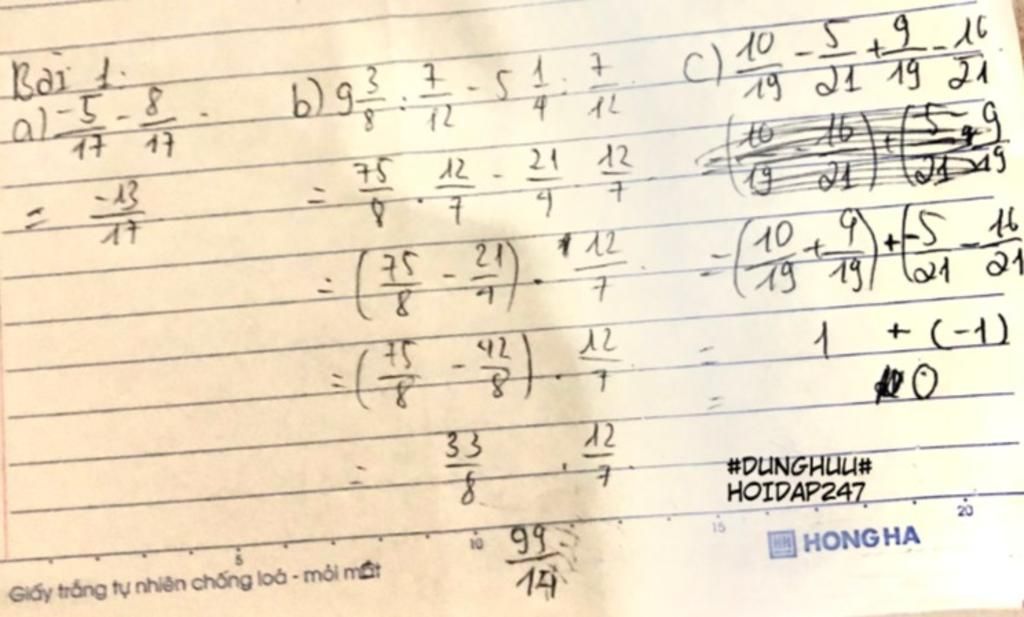 Bài 1:
a) -5/17 - 8/17
= -13/17
b) 9 3/8 : 7/12 - 5 1/4 : 7/12
= 75/8 . 12/7 - 21/4 . 12/7
= (75/8 - 21/4) . 12/7
= (75/8 - 42/8) . 12/7
= 33/8 . 12/7
99/14
c) 10/19 - 5/21 + 9/19 - 16/21
= (10/19 + 9/19) + (-5/21 - 16/21
= 1 + (-1)
= 0
#DUNGHUU#
HOIDAP247
5 10 15 20
HONG HA
Giấy trắng tự nhiên chống loá - mỏi mắt